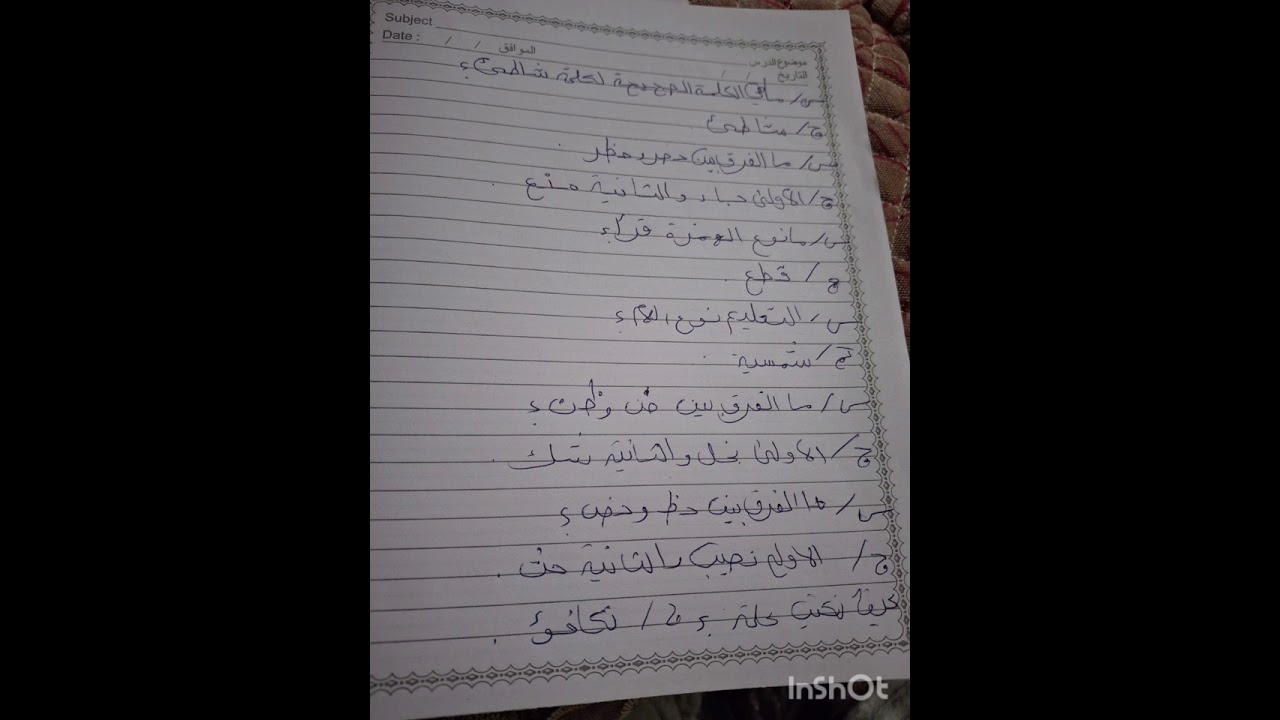 Subject
Date : / / الموافق
موضوع الدرس
التاريخ / /
س/ ماهي الكلمة الصحيحة لكلمة شاطئ؟
ج/ شاطئ
س/ ما الفرق بين حضر وحظر .
ج/ الأولى جاء والثانية منع .
س/ مانوع الهمزة قرأ؟
ج/ قطع .
س/ التعليم نوع ال؟
ج/ شمسية .
س/ ما الفرق بين ضن وظن ؟
ج/ الأولى بخل والثانية شك .
س/ ما الفرق بين حظ وحض ؟
ج/ الاولى نصيب والثانية حث .
كيف نكتب كلمة ؟ ج/ تكافؤ .
InShOt